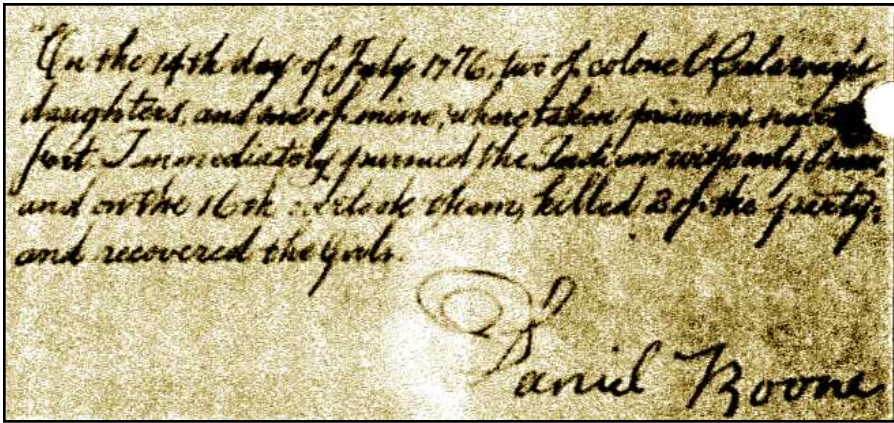 "On the 14th day of July 1776, two of colonel Calaway's
daughters, and one of mine, where taken prisoners near
fort. I immediately pursued the Indians with only 8 men,
and on the 16th overtook them, killed 2 of the party,
and recovered the girls.
Daniel Boone